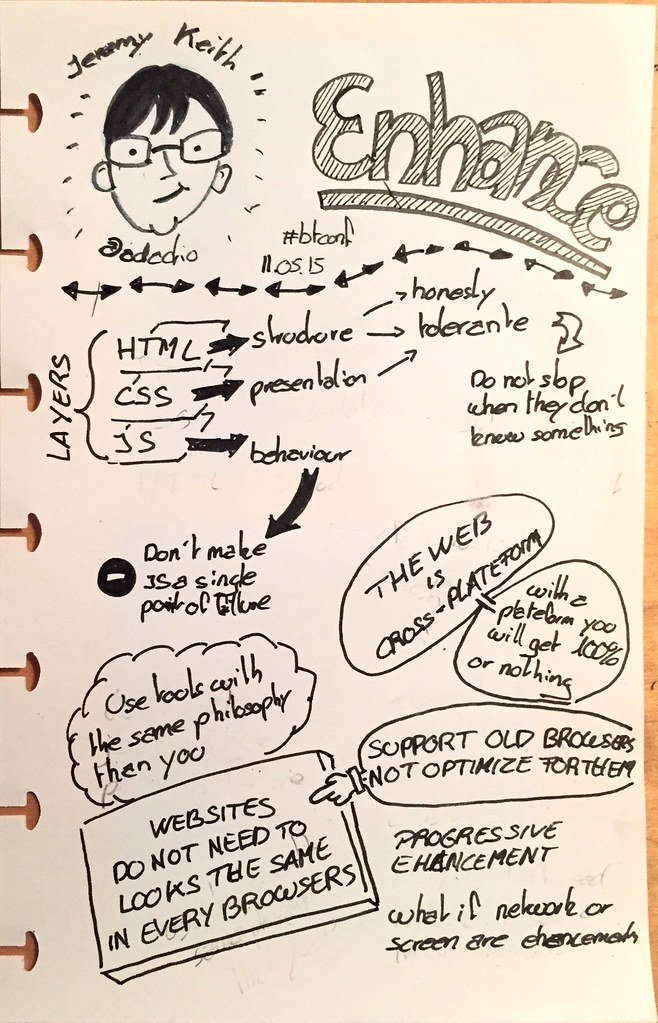 Jeremy Keith
Enhance
@adactio
#btconf
11.05.15
LAYERS
HTML
structure
honesty
tolerante
CSS
presentation
JS
behaviour
Do not stop
when they don't
know something
Don't make
JS a single
point of failure
THE WEB
IS
CROSS-PLATEFORM
with a
plateform you
will get 100%
or nothing
Use tools with
the same philosophy
than you
SUPPORT OLD BROWSERS
NOT OPTIMIZE FOR THEM
WEBSITES
DO NOT NEED TO
LOOKS THE SAME
IN EVERY BROWSERS
PROGRESSIVE
EHANCEMENT
what if network or
screen are ehancements